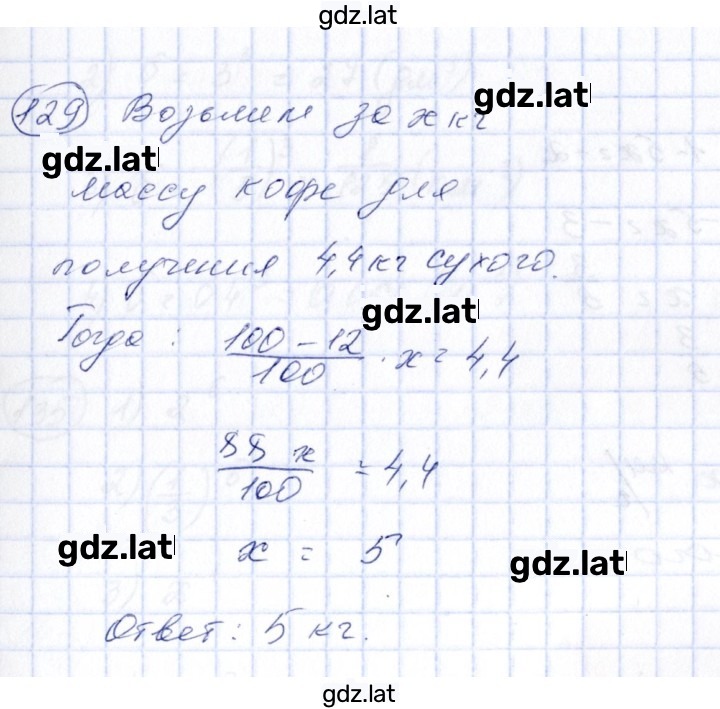 gdz.lat
129 Возьмем за x кг
gdz.lat
gdz.lat
массу кофе для
получения 4,4 кг сухого.
gdz.lat
Тогда: \frac{100-12}{100} · x = 4,4
\frac{88 x}{100} = 4,4
gdz.lat
x = 5
gdz.lat
Ответ: 5 кг.
gdz.lat